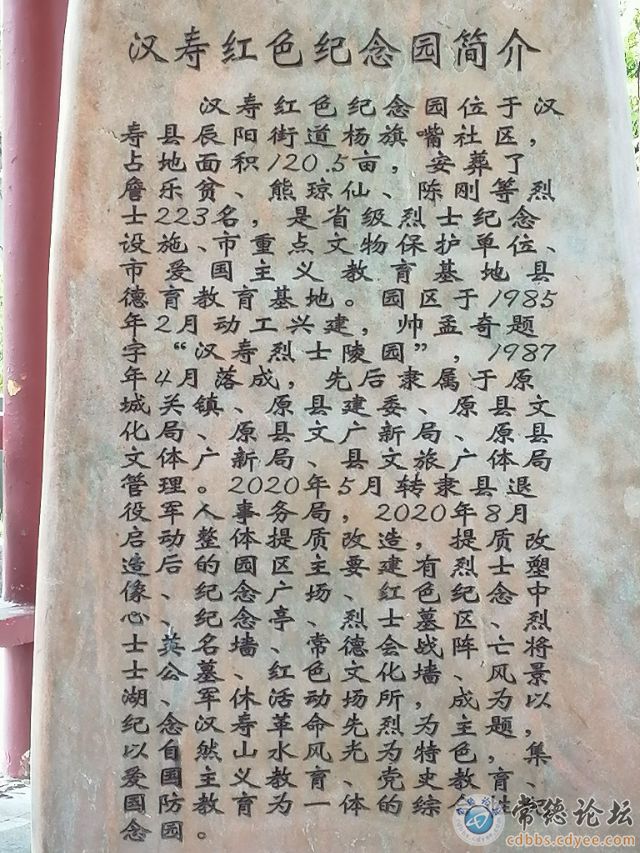 汉寿红色纪念园简介
汉寿红色纪念园位于汉
寿县辰阳街道杨旗嘴社区，
占地面积120.5亩，安葬了
詹乐贫、熊琼仙、陈刚等烈
士223名，是省级烈士纪念
设施、市重点文物保护单位、
市爱国主义教育基地县
德育教育基地。园区于1985
年2月动工兴建，帅孟奇题
字“汉寿烈士陵园”，1987
年4月落成，先后隶属于原
城关镇、原县建委、原县文
化局、原县文广新局、原县
文体广新局、县文旅广体局
管理。2020年5月转隶县退
役军人事务局，2020年8月
启动整体提质改造，提质改
造后的园区主要建有烈士塑
像、纪念广场、红色纪念中
心、纪念亭、烈士墓区、烈
士英名墙、常德会战阵亡将
士公墓、红色文化墙、风景
湖、军休活动场所，成为以
纪念汉寿革命先烈为主题，
以自然山水风光为特色，集
爱国主义教育、党史教育、
国防教育为一体的综
念园。
常德论坛
cdbbs.cdyee.com